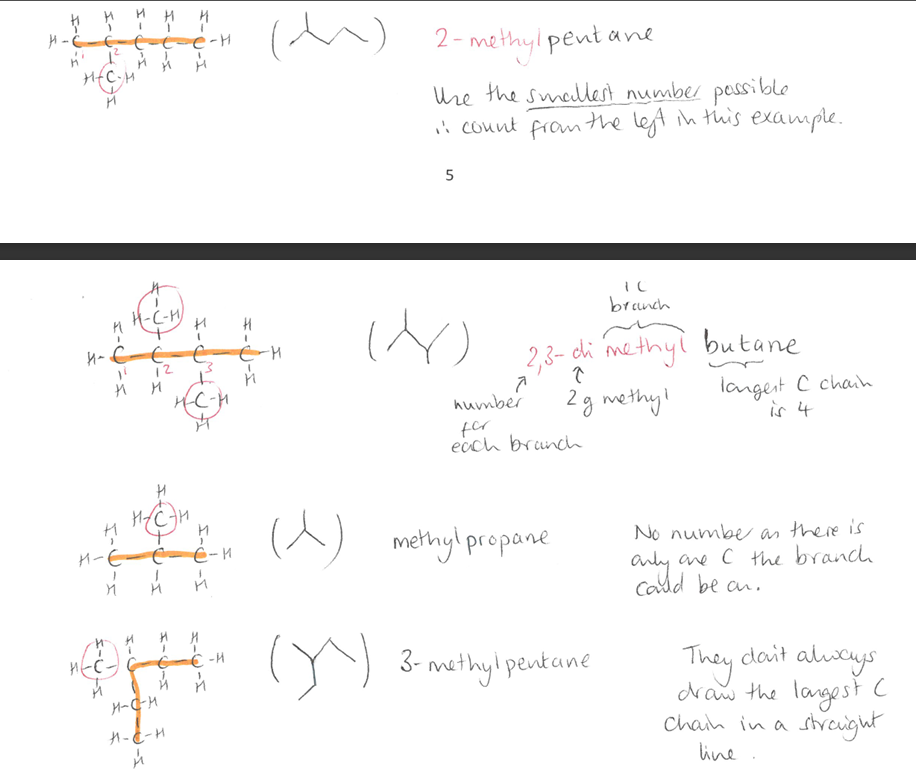 H H H H H
H-C-C-C-C-C-H
H 1 2 H H H
H-C-H
H
2-methylpentane
Use the smallest number possible
∴ count from the left in this example.
5
H
H-C-H
H H H
H-C-C-C-C-H
H 1 H 2 3 H
H-C-H
H
1 C
branch
2,3-di methyl butane
number
for
each branch
2 of methyl
longest C chain
is 4
H
H-C-H
H H
H-C-C-C-H
H H H
methylpropane
No number as there is
only one C the branch
could be on.
H H H H
H-C-C-C-C-H
H H H
H-C-H
H-C-H
H
3-methylpentane
They don't always
draw the longest C
chain in a straight
line.